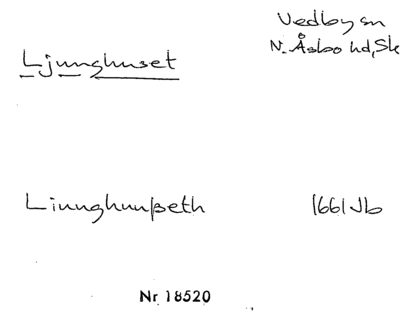 Vedby sn
N. Åsbo hd, Sk
Ljunghuset
Liuughuußeth 1661 Jb
Nr 18520